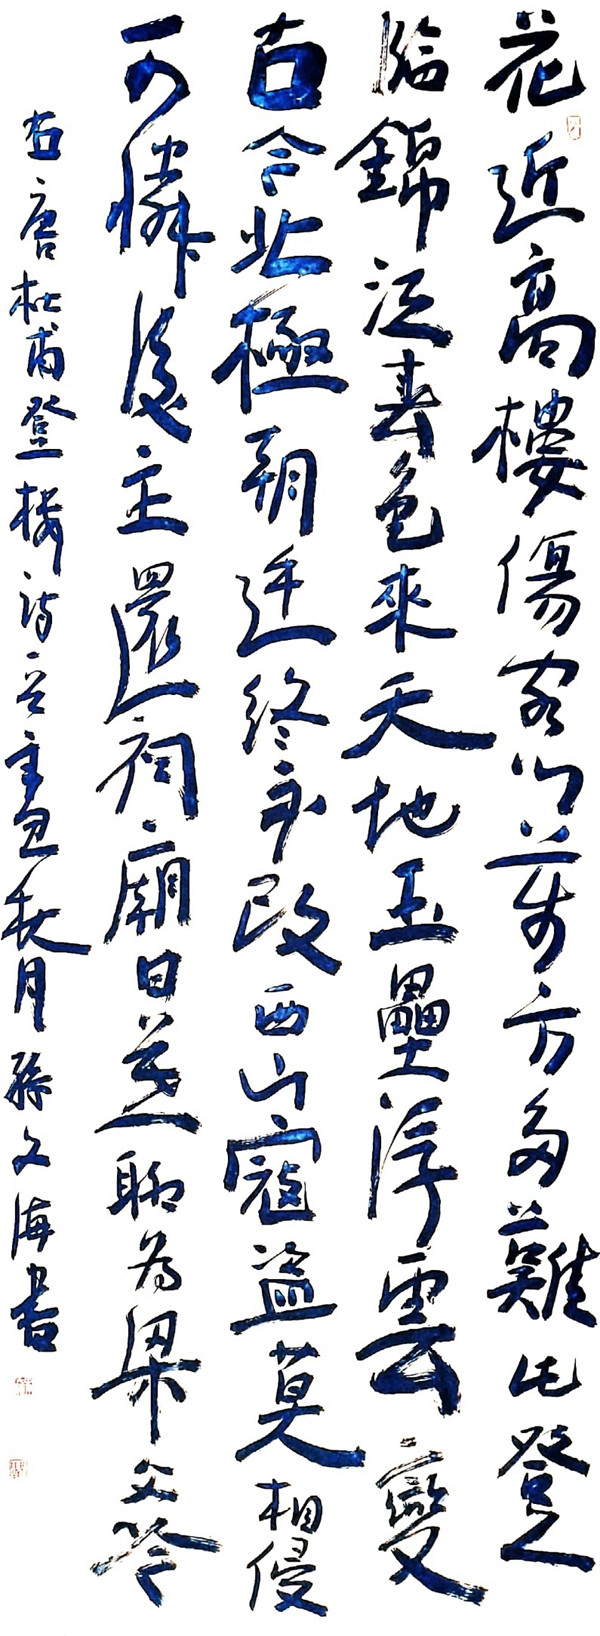 花近高樓傷客心萬方多難此登
臨錦江春色來天地玉壘浮雲變
古今北極朝廷終不改西山寇盜莫相侵
可憐後主還祠廟日暮聊為梁父吟
右唐杜甫登楼诗一首辛丑秋月孫文海書